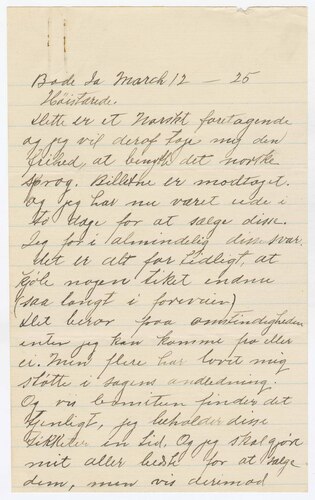 Bode Ia March 12 — 25
Höistærede.
Dette er et Norskt foretagende
og jeg vil derof tage mig den
frihed, at benytte det norske
sprog. Billetne er modtaget.
og jeg har nu været ude i
to dage for at sælge disse.
Jeg for i almindelig disse svar
det er alt for tidligt at
kjöbe nogen tiket endnu
(saa langt i forveien)
Det beror paa omstindigheden
enten jeg kan komme fra eller
ei. Men flere har lovit mig
støtte i sagens andledning.
Og vis Comitien finder det
tjenligt, jeg beholder disse
tikkter en tid, Og jeg skal gjöre
mit aller bedste for at sælge
dem, men vis derimod